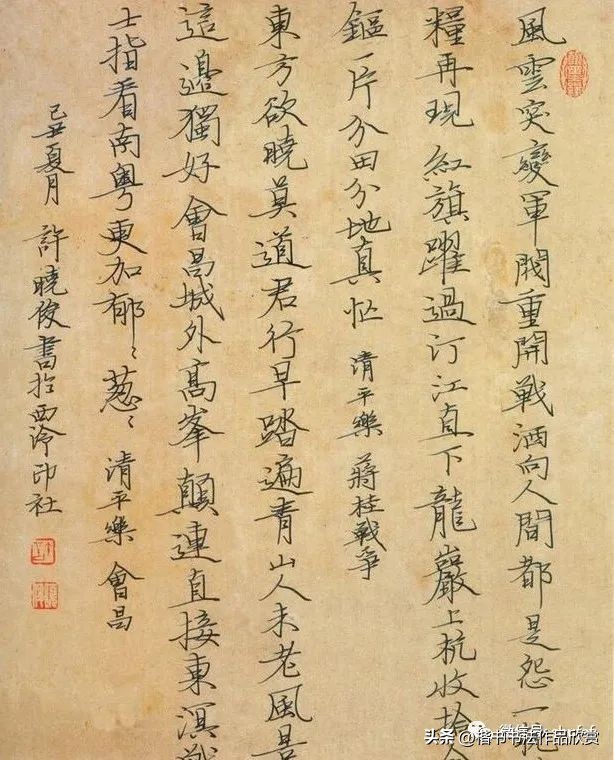 風雲突變軍閥重開戰洒向人間都是怨一枕
糧再現紅旗躍過汀江直下龍巖上杭收拾金
鏂一片分田分地真忙 清平樂 蔣桂戰爭
東方欲曉莫道君行早踏遍青山人未老風景
這邊獨好會昌城外高峯顛連直接東溟戰
士指看南粵更加郁〻葱〻 清平樂 會昌
己丑夏月 許曉俊書於西泠印社
微信号
头条 @楷书书法作品欣赏